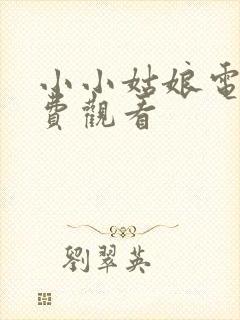 小小姑娘電
費觀看
劉翠英